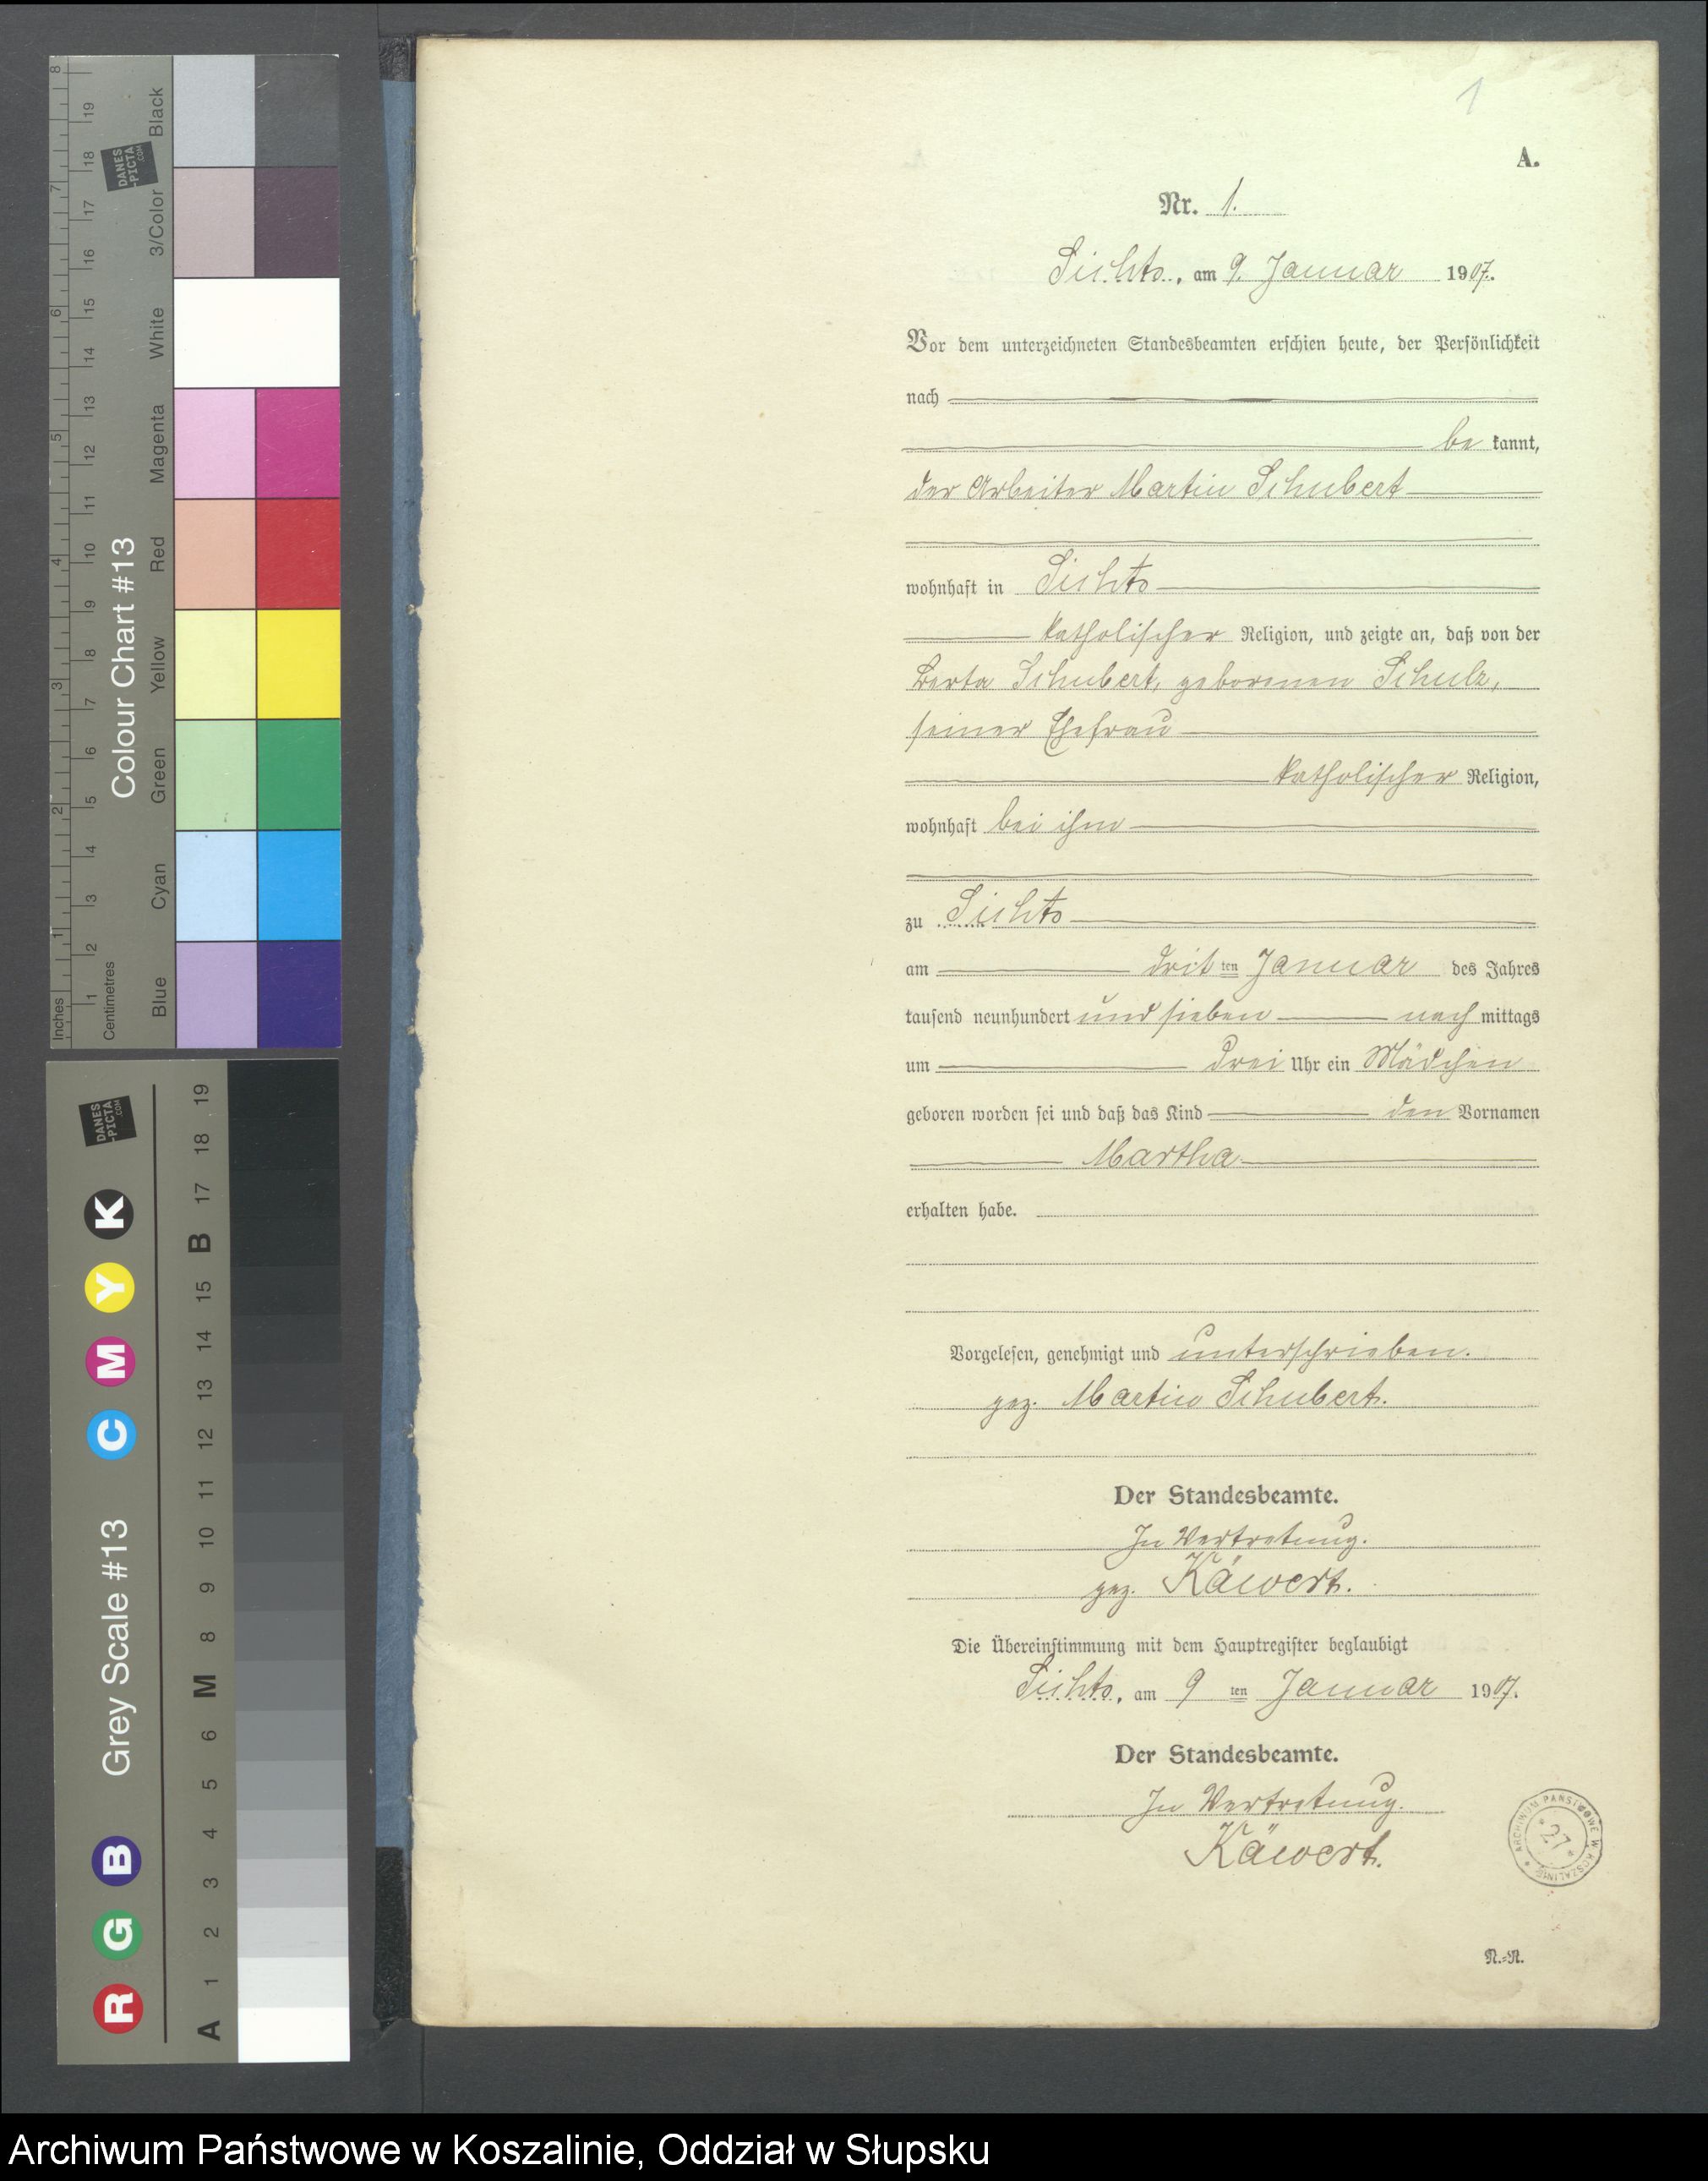 1
A.
Nr. 1.
Sichts, am 9. Januar 1907.
Vor dem unterzeichneten Standesbeamten erschien heute, der Persönlichkeit
nach
be kannt,
der Arbeiter Martin Schubert
wohnhaft in Sichts
katholischer Religion, und zeigte an, daß von der
Berta Schubert, geborenen Schulz,
seiner Ehefrau
katholischer Religion,
wohnhaft bei ihm
zu Sichts
am drit ten Januar des Jahres
tausend neunhundert und sieben nach mittags
um drei Uhr ein Mädchen
geboren worden sei und daß das Kind den Vornamen
Martha
erhalten habe.
Vorgelesen, genehmigt und unterschrieben.
gez. Martin Schubert.
Der Standesbeamte.
In Vertretung.
gez. Käwert.
Die Übereinstimmung mit dem Hauptregister beglaubigt
Sichts, am 9 ten Januar 1907.
Der Standesbeamte.
In Vertretung.
Käwert.
ARCHIWUM PAŃSTWOWE W KOSZALINIE
27
N.-R.
Inches
1 2 3 4 5 6 7 8
Centimetres
1 2 3 4 5 6 7 8 9 10 11 12 13 14 15 16 17 18 19
Colour Chart #13
Blue Cyan Green Yellow Red Magenta White 3/Color Black
DANES
-PICTA
.COM
Grey Scale #13
R G B C M Y K
DANES
-PICTA
.COM
A 1 2 3 4 5 6 M 8 9 10 11 12 13 14 15 B 17 18 19
Archiwum Państwowe w Koszalinie, Oddział w Słupsku